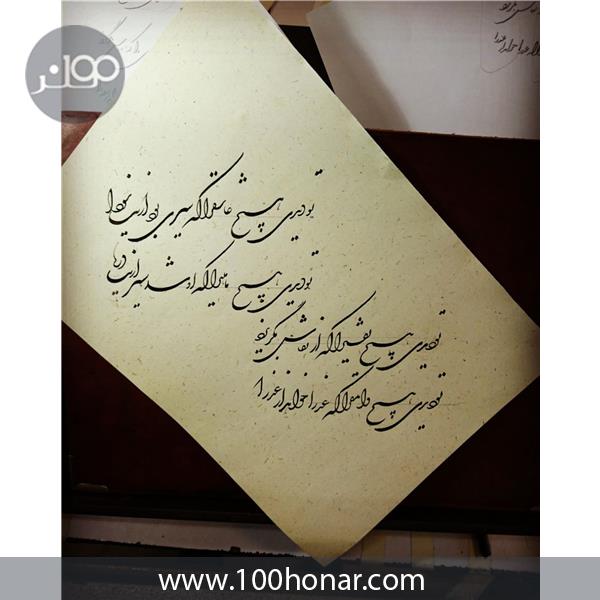 تو دیدی هیچ عاشق را که سیری بود از این سودا
تو دیدی هیچ ماهی را که او شد سیر از این دریا
تو دیدی هیچ نقشی را که از نقاش بگریزد
تو دیدی هیچ وامق را که عذرا خواهد از عذرا
www.100honar.com